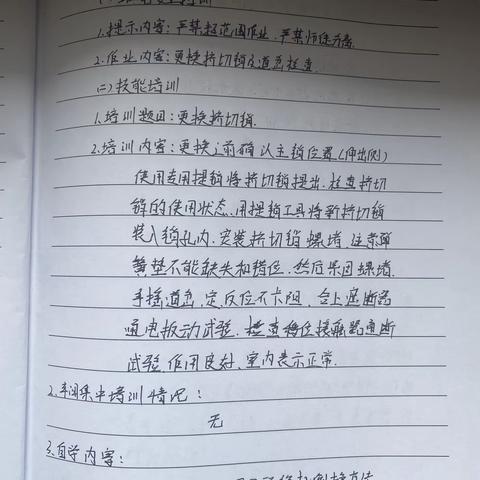 1.提示内容:严禁超范围作业.严禁师徒分离.
2.作业内容:更换挤切销及道岔检查.
(二)技能培训
1.培训题目:更换挤切销.
2.培训内容:更换前确认主销位置(伸出侧)
使用专用提销将挤切销提出.检查挤切
销的使用状态.用提销工具将新挤切销
装入销孔内.安装挤切销螺堵.注意弹
簧垫不能缺失和错位.然后紧固螺堵.
手摇道岔.定.反位不卡阻.合上遮断器
通电扳动试验.检查移位接触器通断
试验.作用良好.室内表示正常.
2.车间集中培训情况:
无
3.自学内容: